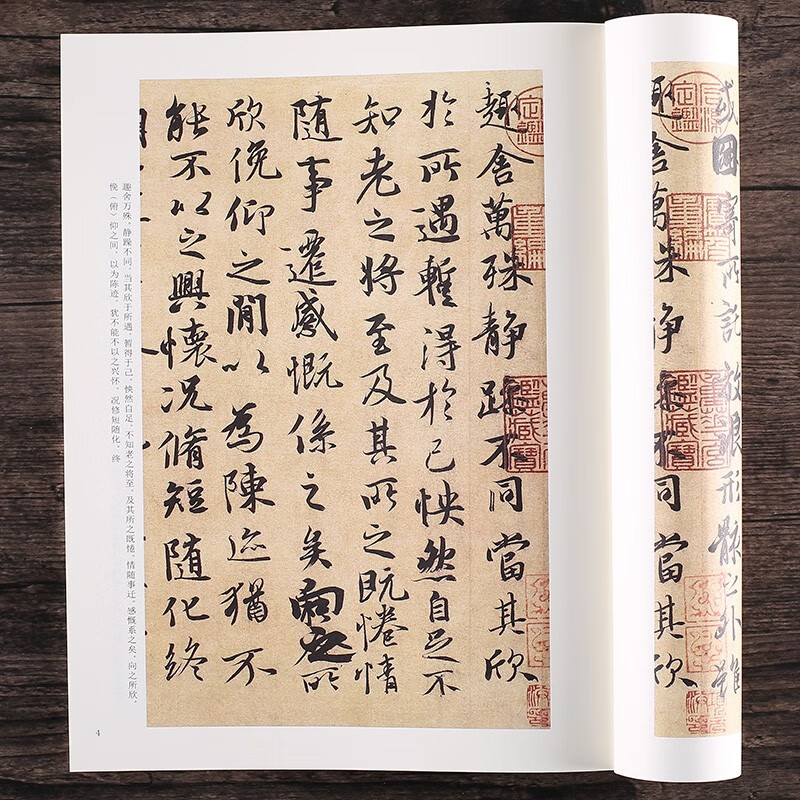 或因寄所託放浪形骸之外雖
趣舍萬殊静躁不同當其欣
趣舍萬殊静躁不同當其欣
於所遇暫得於己怏然自足不
知老之將至及其所之既惓情
隨事遷感慨係之矣向之所
欣俛仰之閒以為陳迹猶不
能不以之興懷況脩短隨化終
趣舍万殊，静躁不同，当其欣于所遇，暂得于己，怏然自足，不知老之将至，及其所之既惓，情随事迁，感慨系之矣。向之所欣，
俛（俯）仰之间，以为陈迹，犹不能不以之兴怀，况修短随化，终
4